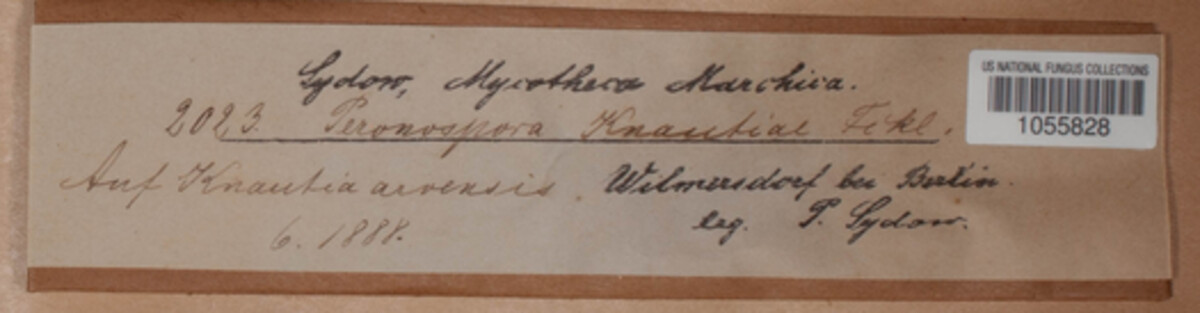 Sydow, Mycotheca Marchica.
2023. Peronospora Knautiae Fckl.
Auf Knautia arvensis. Wilmersdorf bei Berlin.
6. 1888. leg. P. Sydow.
US NATIONAL FUNGUS COLLECTIONS
1055828